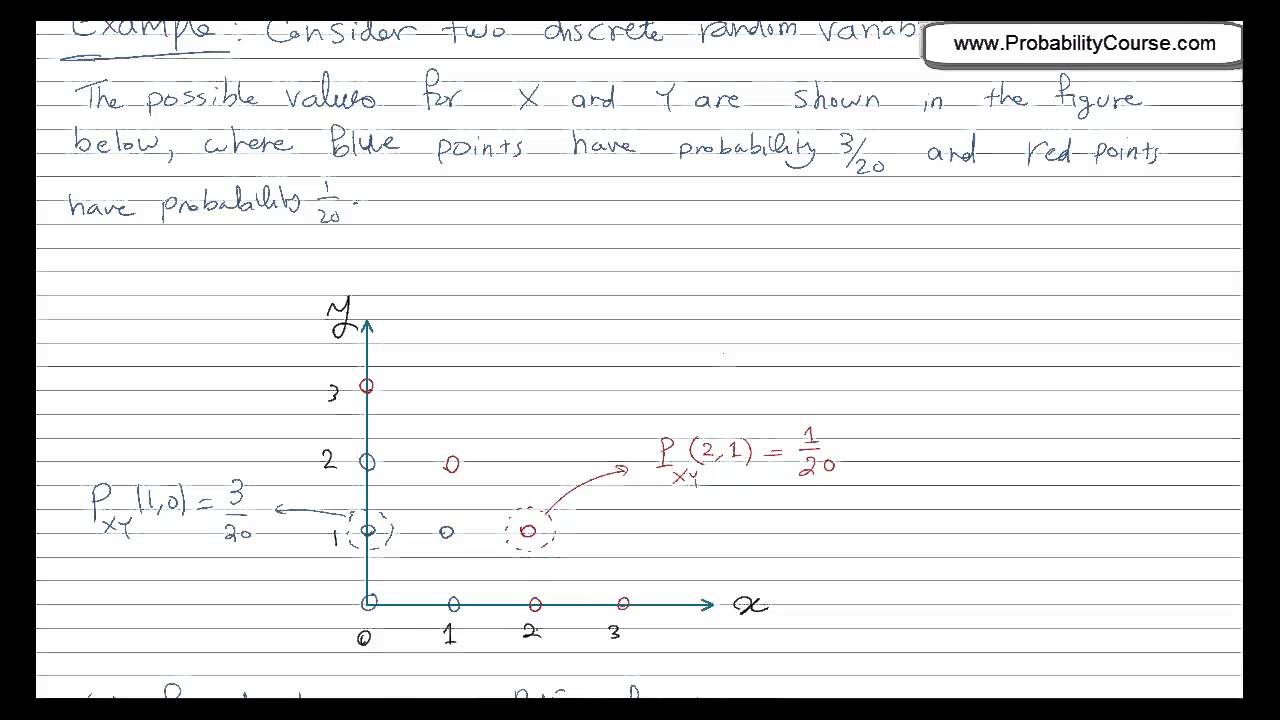 Example: Consider two discrete random variab
www.ProbabilityCourse.com
The possible values for X and Y are shown in the figure
below, where Blue points have probability 3/20 and red points
have probability 1/20.
y
3
2
P_XY(2,1) = 1/20
P_XY(1,0) = 3/20
1
x
0 1 2 3